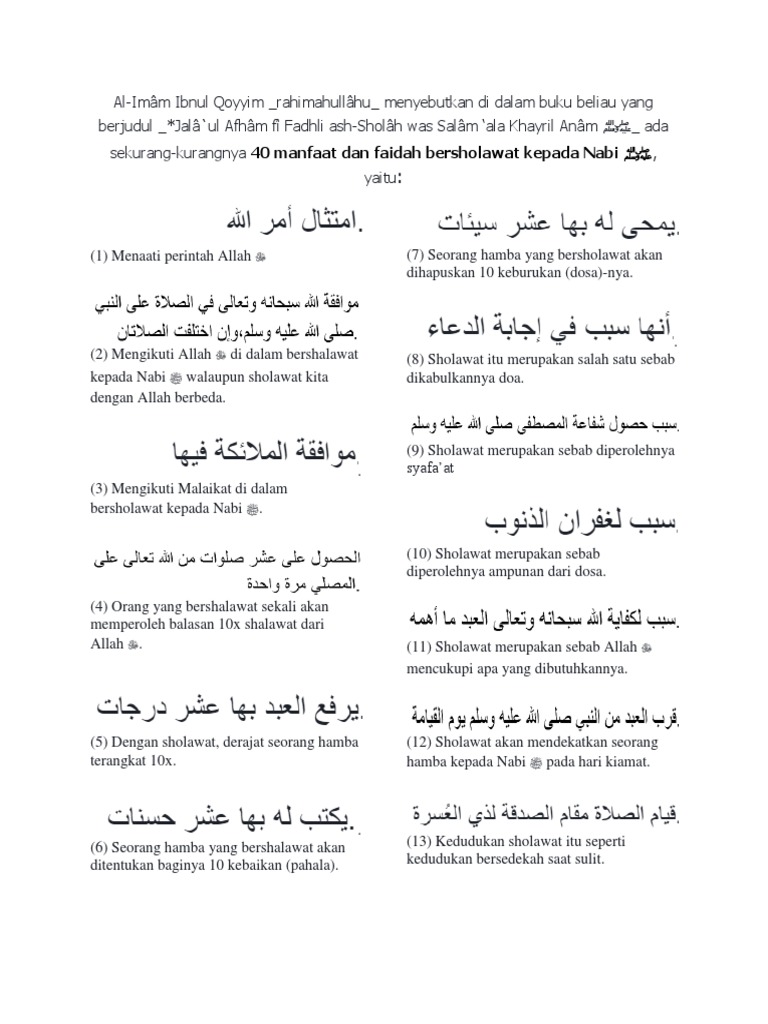 Al-Imâm Ibnul Qoyyim _rahimahullâhu_ menyebutkan di dalam buku beliau yang
berjudul _*Jalâ`ul Afhâm fî Fadhli ash-Sholâh was Salâm ‘ala Khayril Anâm ﷺ_ ada
sekurang-kurangnya 40 manfaat dan faidah bersholawat kepada Nabi ﷺ,
yaitu:
امتثال أمر الله.
(1) Menaati perintah Allah ﷻ
موافقة الله سبحانه وتعالى في الصلاة على النبي
صلى الله عليه وسلم،وإن اختلفت الصلاتان.
(2) Mengikuti Allah ﷻ di dalam bershalawat
kepada Nabi ﷺ walaupun sholawat kita
dengan Allah berbeda.
موافقة الملائكة فيها.
(3) Mengikuti Malaikat di dalam
bersholawat kepada Nabi ﷺ.
الحصول على عشر صلوات من الله تعالى على
المصلي مرة واحدة.
(4) Orang yang bershalawat sekali akan
memperoleh balasan 10x shalawat dari
Allah ﷻ.
يرفع العبد بها عشر درجات.
(5) Dengan sholawat, derajat seorang hamba
terangkat 10x.
يكتب له بها عشر حسنات.
(6) Seorang hamba yang bershalawat akan
ditentukan baginya 10 kebaikan (pahala).
يمحى له بها عشر سيئات.
(7) Seorang hamba yang bersholawat akan
dihapuskan 10 keburukan (dosa)-nya.
أنها سبب في إجابة الدعاء.
(8) Sholawat itu merupakan salah satu sebab
dikabulkannya doa.
سبب حصول شفاعة المصطفى صلى الله عليه وسلم.
(9) Sholawat merupakan sebab diperolehnya
syafa’at
سبب لغفران الذنوب.
(10) Sholawat merupakan sebab
diperolehnya ampunan dari dosa.
سبب لكفاية الله سبحانه وتعالى العبد ما أهمه.
(11) Sholawat merupakan sebab Allah ﷻ
mencukupi apa yang dibutuhkannya.
قرب العبد من النبي صلى الله عليه وسلم يوم القيامة.
(12) Sholawat akan mendekatkan seorang
hamba kepada Nabi ﷺ pada hari kiamat.
قيام الصلاة مقام الصدقة لذي العُسرة.
(13) Kedudukan sholawat itu seperti
kedudukan bersedekah saat sulit.